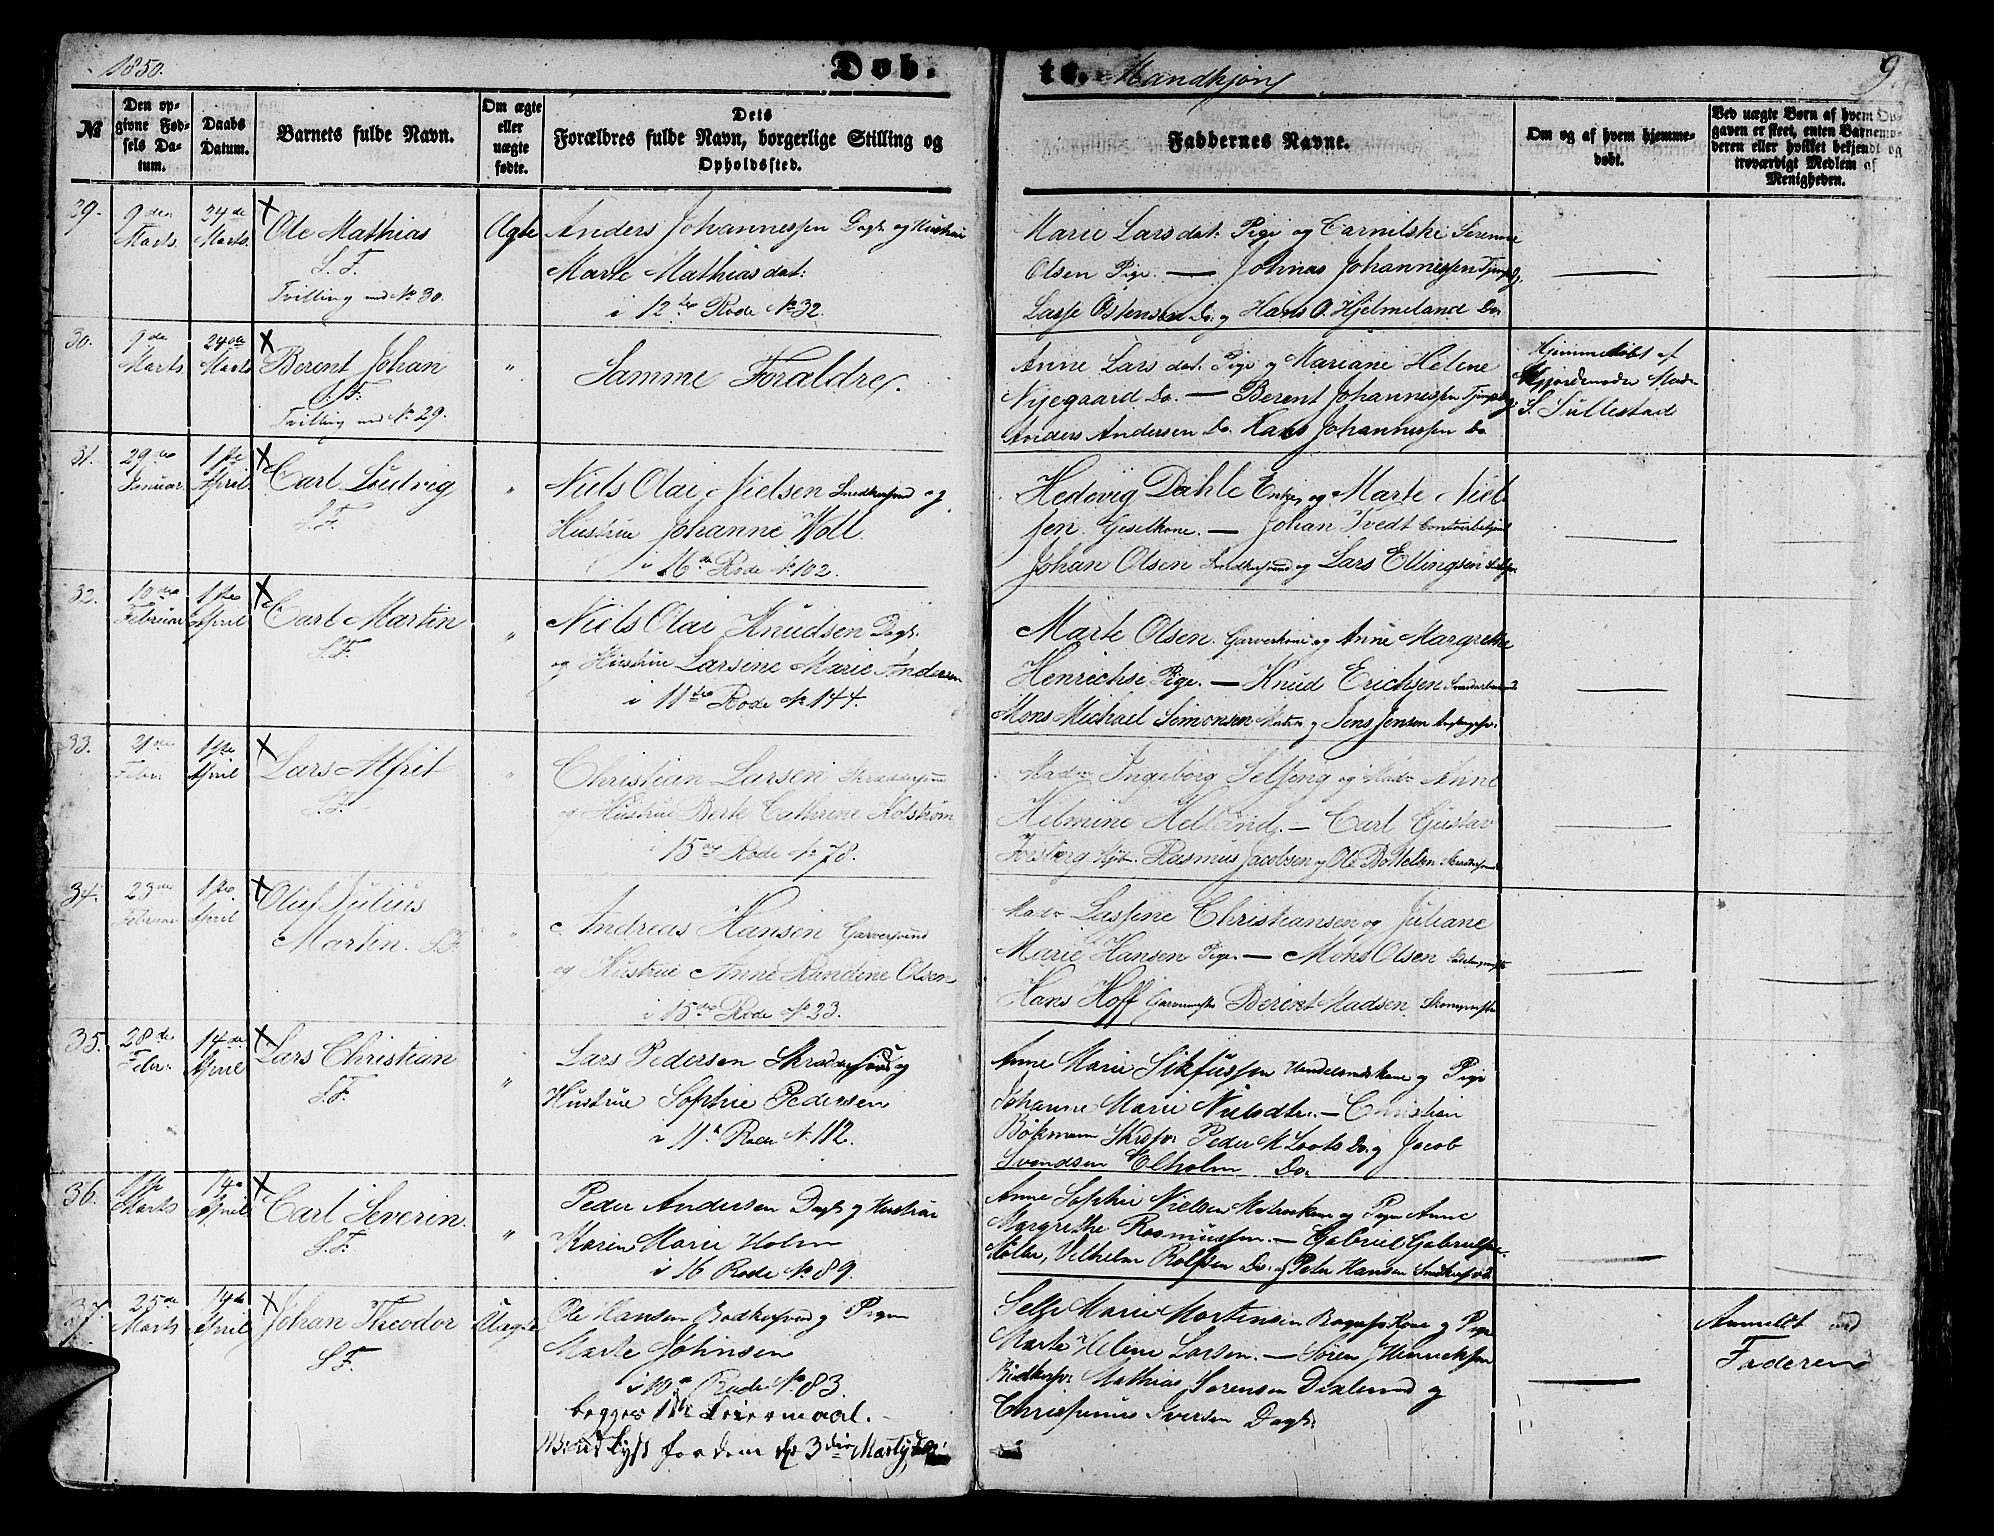 1850.
Døb-
te. Mandkjøn
9.
№
Den opgivne Fødsels Datum.
Daabs Datum.
Barnets fulde Navn.
Om ægte eller uægte fødte.
Dets
Forældres fulde Navn, borgerlige Stilling og
Opholdssted.
Faddernes Navne.
Om og af hvem hjemmedøbt.
Ved uægte Børn af hvem Opgaven er skeet, enten Barnemoderen eller hvilket bekjendt og troværdigt Medlem af Menigheden.
29.
9den Marts
24de Marts
Ole Mathias
S. F.
Tvilling med No 30.
Ægte
Anders Johannessen Dagl. og Hustrue
Marte Mathiasdat:
i 12te Rode No 32.
Marie Larsdat. Pige og Serenne
Olsen Pige. — Johnas Johannessen
Lasse Ostensen Do. og Hans O. Hjelmeland Do
30.
9de Marts
24de Marts
Berent Johan
S. F.
Tvilling med No 29.
"
Samme Forældre.
Anne Larsdat. Pige og Mariane Helene
Nijegaard Do. — Berent Johannessen
Anders Andersen Do. Hans Johannessen Do
Hjemmedøbt af
Gjordemoder Mad.
S. Tullestad
31.
29de Januar
1ste April
Carl Ludvig
S. F.
"
Niels Olai Nielsen Snedkersvend og
Hustrue Johanne Woll
i 16de Rode No 102.
Hedevig Dahle Enke og Marte Niel
sen. — Johan Tvedt Contoirbetjent
Johan Olsen Snedkersvend og Lars Ellingsen
32.
10de Februar
1ste April
Carl Martin
S. F.
"
Niels Olai Knudsen Dagl.
og Hustrue Larsine Marie Andersen
i 11te Rode No 144.
Marte Olsen Garverkone og Anne Margrethe
Henrichse Pige. — Knud Erichsen
Mons Michael Simonsen Matros og Jens Jensen
33.
21de Febr.
1ste April
Lars Alfrit
S. F.
"
Christian Larsen Skræddersvend
og Hustrue Berte Cathrine Holstrøm
i 15de Rode No 78.
Madm Ingeborg Selseng og Madm Anne
Helmine Helland. — Carl Gustav
Rasmus Jacobsen og Ole Bottelsen
34.
23de Februar
1ste April
Oluf Julius
Martin. S. F.
"
Andreas Hansen Garversvend
og Hustrue Anne Randine Olsen
i 15de Rode No 23.
Madm Lassine Christiansen og Juliane
Marie Hansen Pige. — Mons Olsen
Hans Hoff Garvermester Berent Madsen Skomagermester
35.
28de Febr.
14de April
Lars Christian
S. F.
"
Lars Pedersen Skræddersvend og
Hustrue Sophie Pedersen
i 11te Rode No 112.
Anne Marie Sikfussen Handelsmdskone og Pige
Johanne Marie Nielsdtr. — Christian
Bøkman Peder K Loots Do. og Jacob
Svendsen Olholm Do.
36.
1ste Marts
14de April
Carl Severin.
S. F.
"
Peder Andersen Dagl. og Hustrue
Karen Marie Holm
i 16 Rode No 89.
Anne Sophie Nielsen Matroskone og Pigen Anne
Margrethe Rasmussen. — Gabriel Gabrielsen
Vilhelm Rolfsen Do. og Peter Hansen Snedkersvd.
37.
25de Marts
14de April
Johan Theodor
S. F.
Uægte
Ole Hansen Bødkersvend og Pigen
Marte Johnsen
i 10de Rode No 83.
begges 1ste Leiermaal.
for dem
Marie Mortensen og Pige
Marte Helene Larsen. — Søren Henrichsen
Mathias Sørensen og
Iversen Dagl.
Anmeldt
Faderen